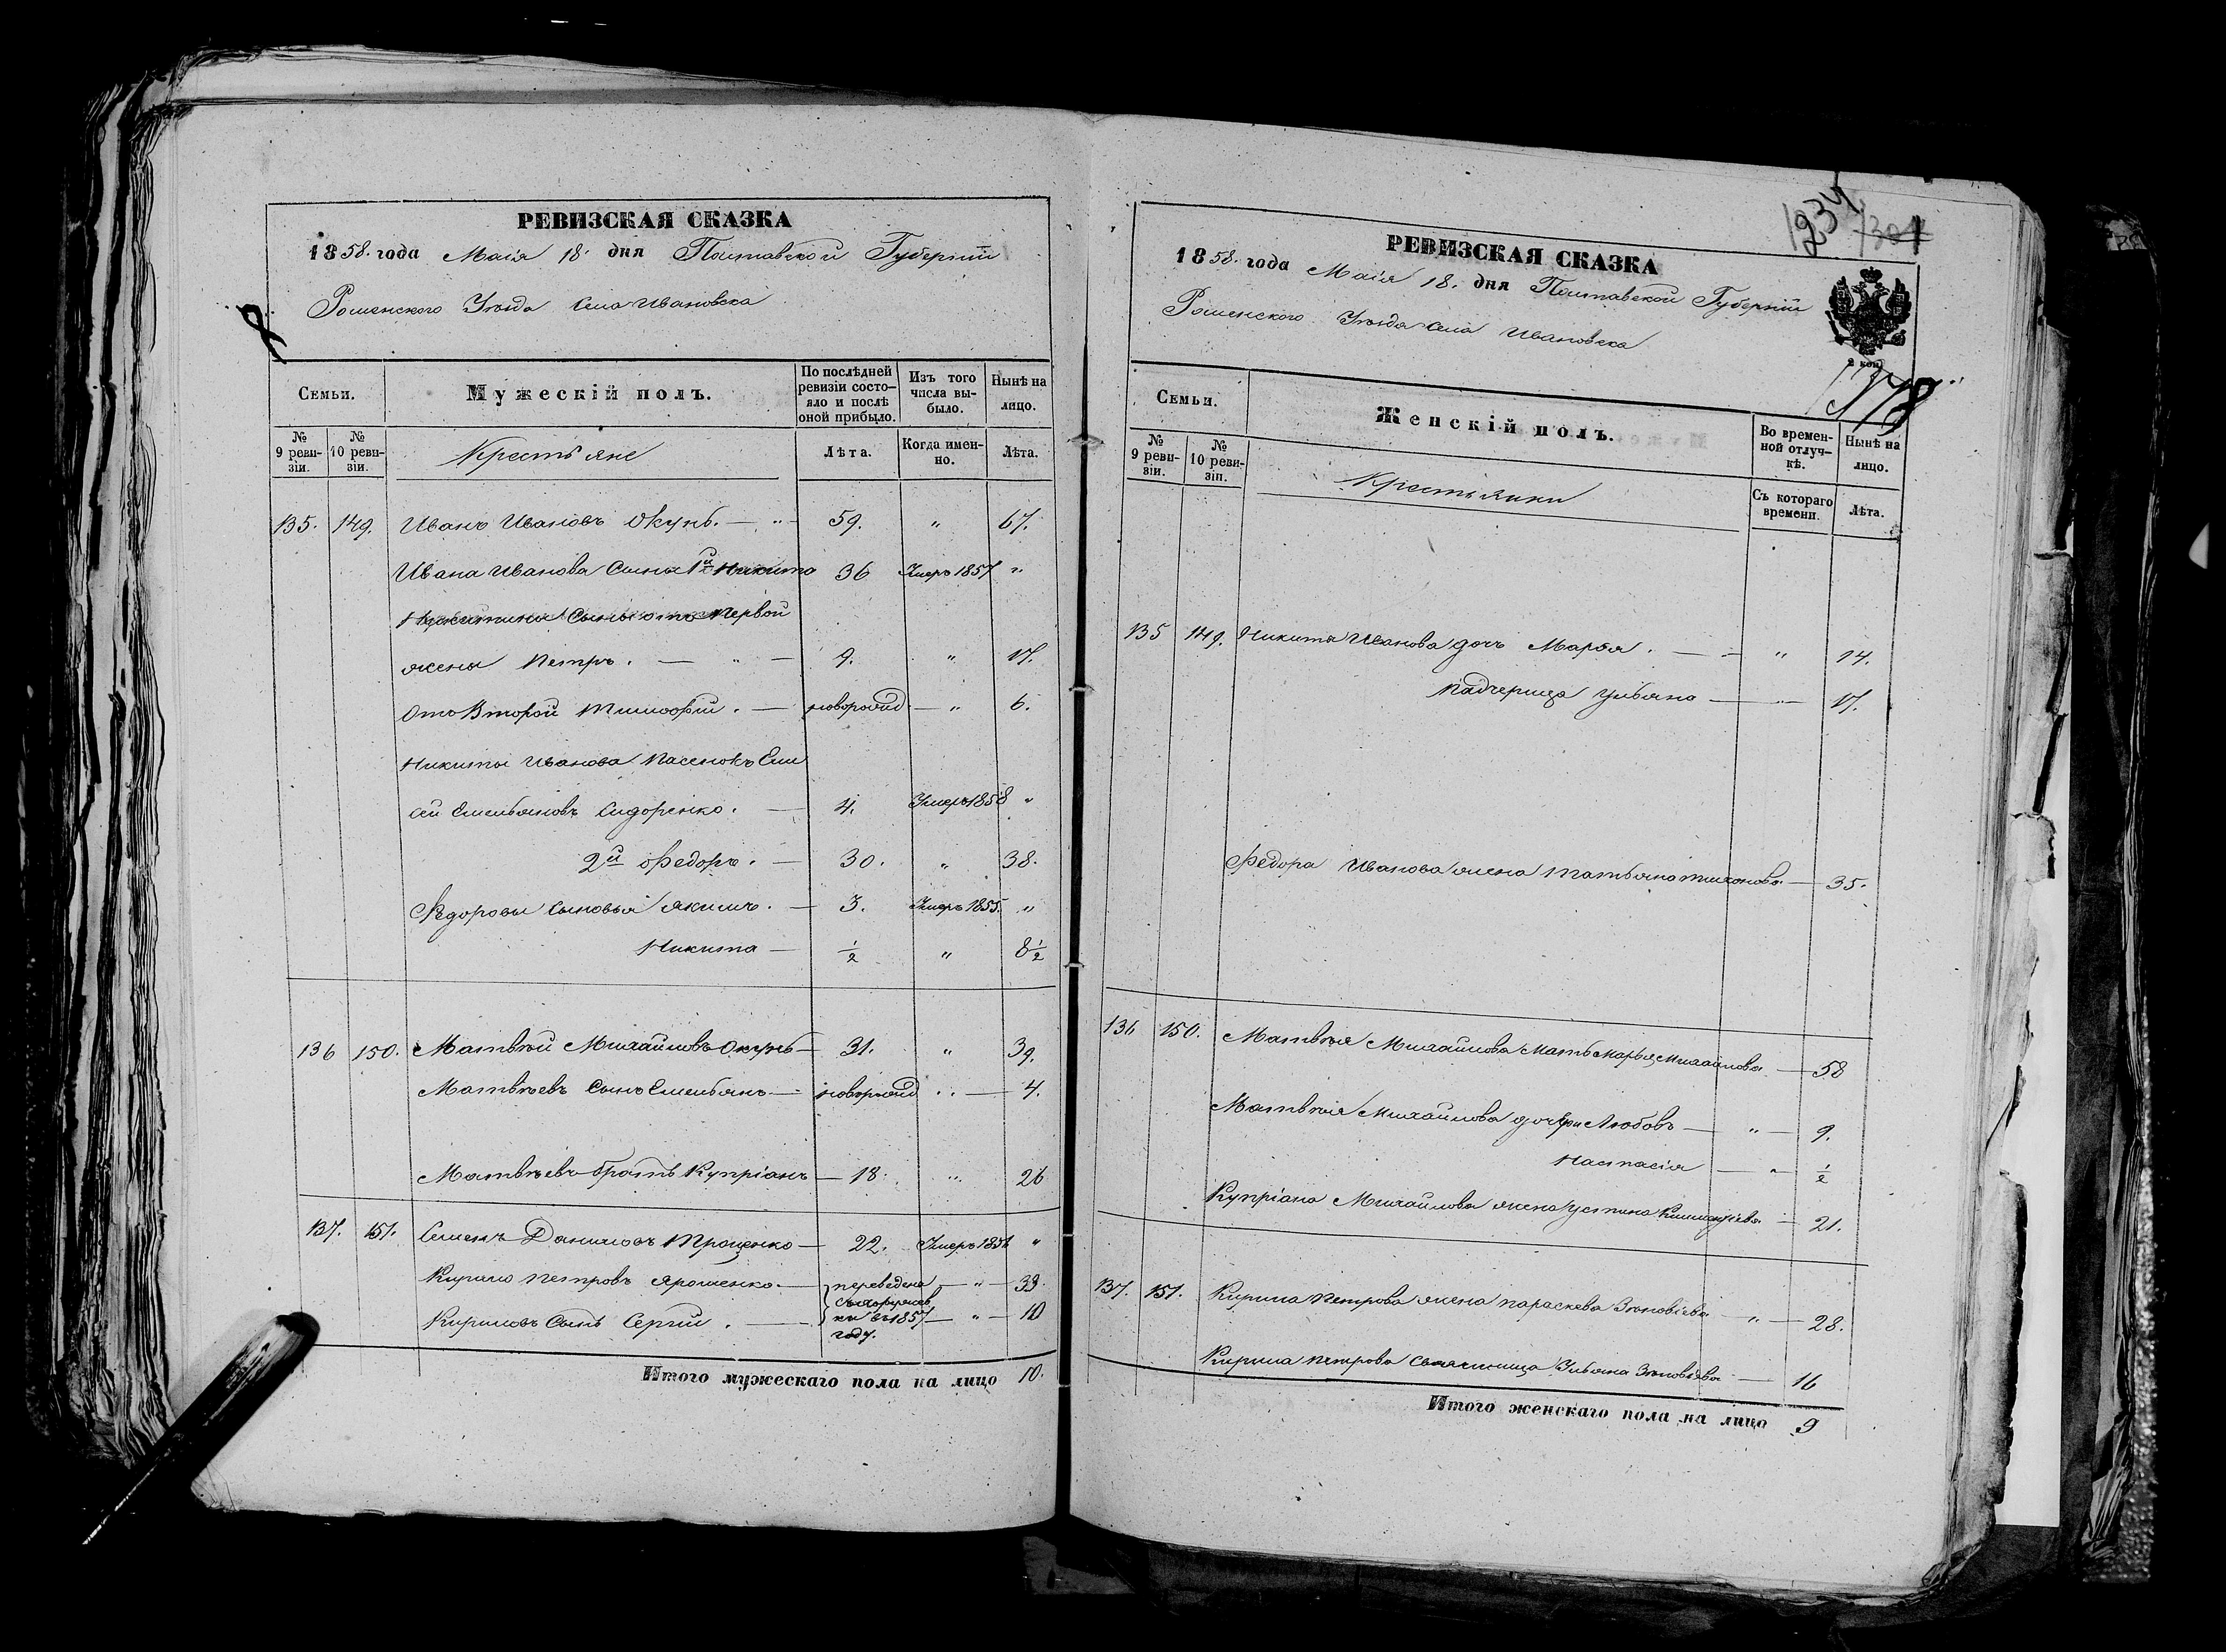 РЕВИЗСКАЯ СКАЗКА
1858. года Маія 18. дня Полтавской Губерніи
Роменского Уѣзда Села Ивановска
Семьи.
Мужескій полъ.
По послѣдней ревизіи состо-
яло и послѣ
оной прибыло.
Изъ того
числа вы-
было.
Нынѣ на
лицо.
№
9 реви-
зіи.
№
10 реви-
зіи.
Крестьяне
Лѣта.
Когда имен-
но.
Лѣта.
135. 149. Иванъ Ивановъ Окунь. — " — 59. " 67.
Ивана Иванова Сыны 1й Никита 36 Умеръ 1857 "
Никитины Сыны отъ Первой
жены Петръ. — " — 9. " 17.
Отъ Второй Тимофій. — новорожд — " 6.
Никиты Иванова Пасенокъ Ели
сей Емельяновъ Сидоренко. — 4. Умеръ 1858 "
2й Федоръ. — 30. " 38.
Федоровы Сыновья Якимъ. — 3. Умеръ 1855. "
Никита — ½ " 8½
136 150. Матвѣй Михайловъ Окунь — 31. " 39.
Матвѣевъ Сынъ Емельянъ — новорожд " — 4.
Матвѣевъ братъ Купріанъ — 18. " 26
137. 151. Семенъ Даниловъ Проценко — 22. Умеръ 1856 "
Кирило Петровъ Ярошенко. — переведена — " — 33.
Кириловъ Сынъ Сергій. — въ 1857 — " — 10
году.
Итого мужескаго пола на лицо 10.
1234
1301
РЕВИЗСКАЯ СКАЗКА
1858. года Маія 18. дня Полтавской Губерніи
Роменского Уѣзда Села Ивановска
2 коп.
Семьи.
Женскій полъ.
Во времен-
ной отлуч-
кѣ.
Нынѣ на
лицо.
№
9 реви-
зіи.
№
10 реви-
зіи.
Крестьянки
Съ котораго
времени.
Лѣта.
135 149. Никиты Иванова дочь Марфа. — " 14.
Падчерица Ульяна — " — 17.
Федора Иванова жена Татьяна Тихонова — 35.
136 150. Матвѣя Михайлова Мать Марья Михайлова — 58
Матвѣя Михайлова дочери Любовь — " — 9.
Настасія — " — ½
Купріана Михайлова жена Устина — 21.
137. 151. Кирила Петрова жена Параскева Зѣновіева — " — 28.
Кирила Петрова Свояченица Ульяна Зѣновіева — 16
Итого женскаго пола на лицо 9